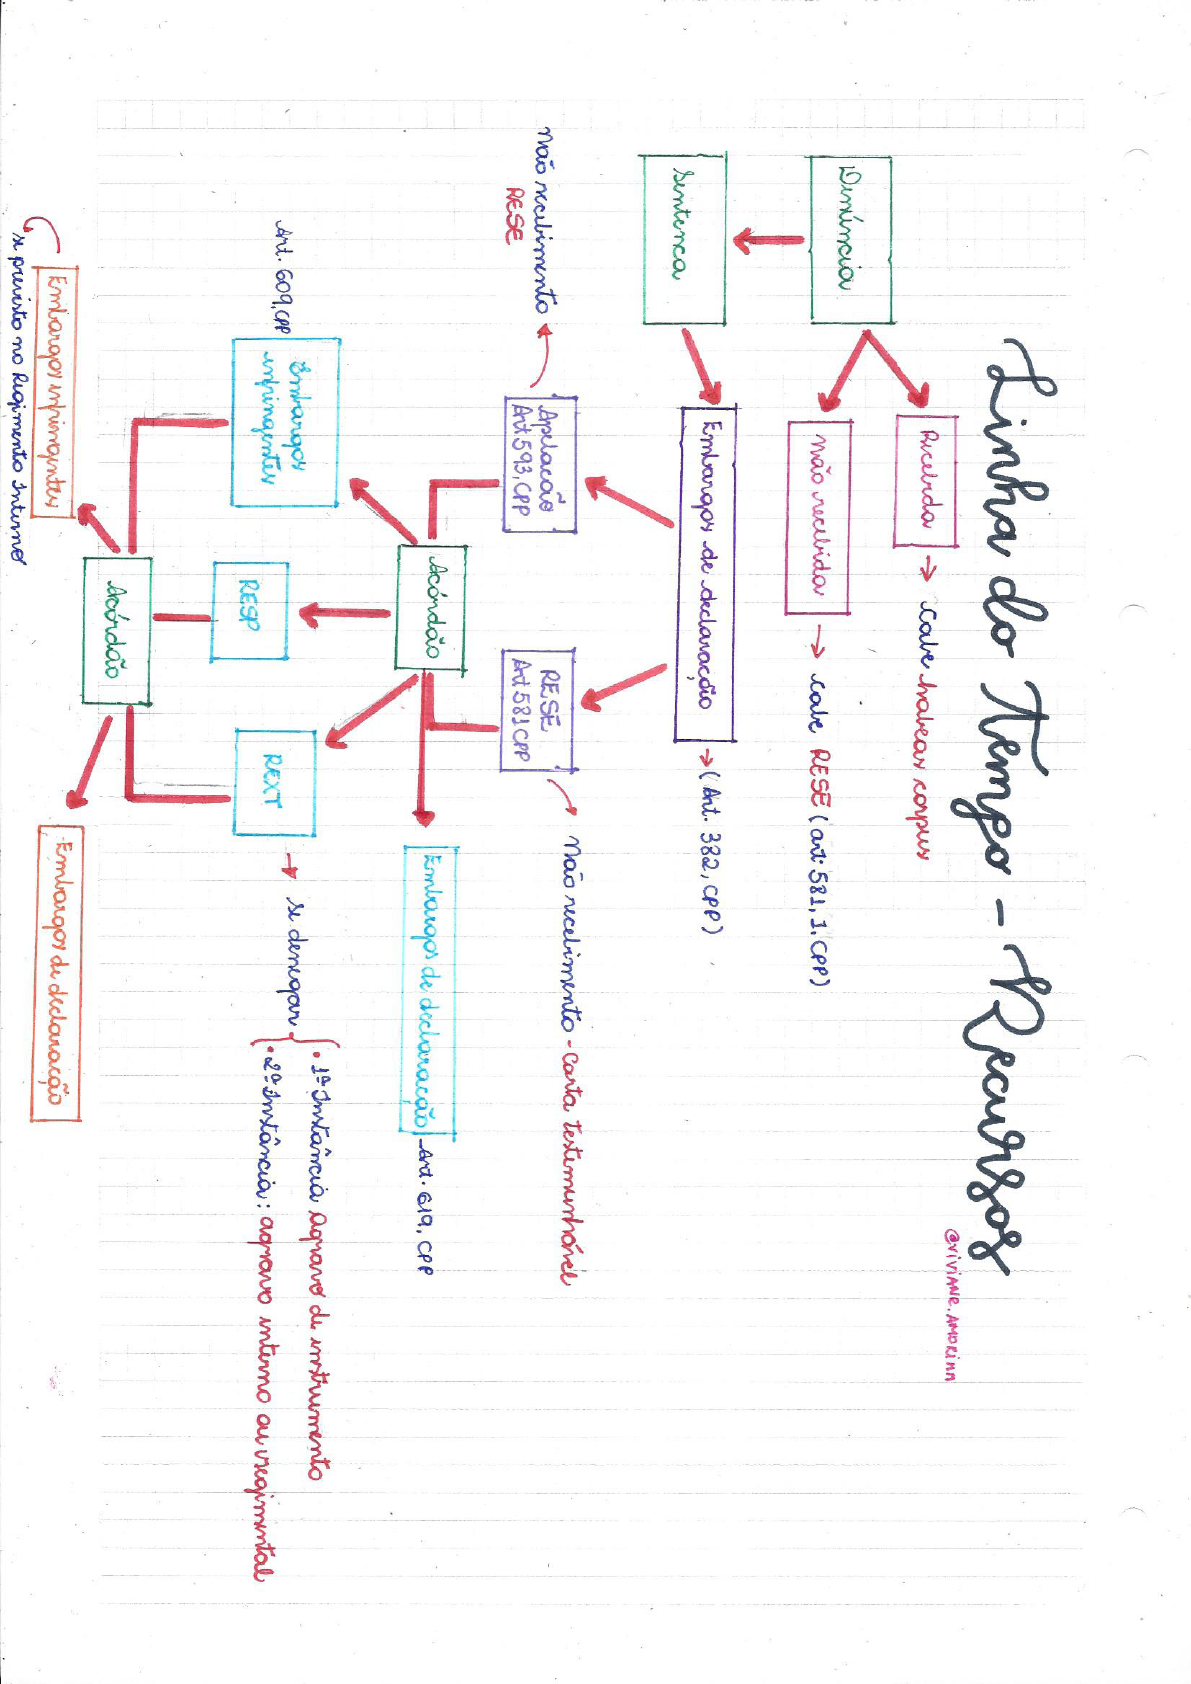 Linha do Tempo - Recursos
@viviane.amorimm
Denúncia
Recebida
→ cabe habeas corpus
não recebida
→ cabe RESE (art: 581, 1. CPP)
Sentença
Embargos de declaração
→ (Art. 382, CPP)
não recebimento
RESE
Apelação
Art 593, CPP
RESE
Art 581 CPP
não recebimento - carta testemunhável
Acórdão
Embargos de declaração
- Art. 619, CPP
Art. 609, CPP
Embargos
infringentes
RESP
REXT
→ se denegar
• 1ª Instância agravo de instrumento
• 2ª Instância: agravo interno ou regimental
Acórdão
Embargos infringentes
se previsto no Regimento Interno
Embargos de declaração